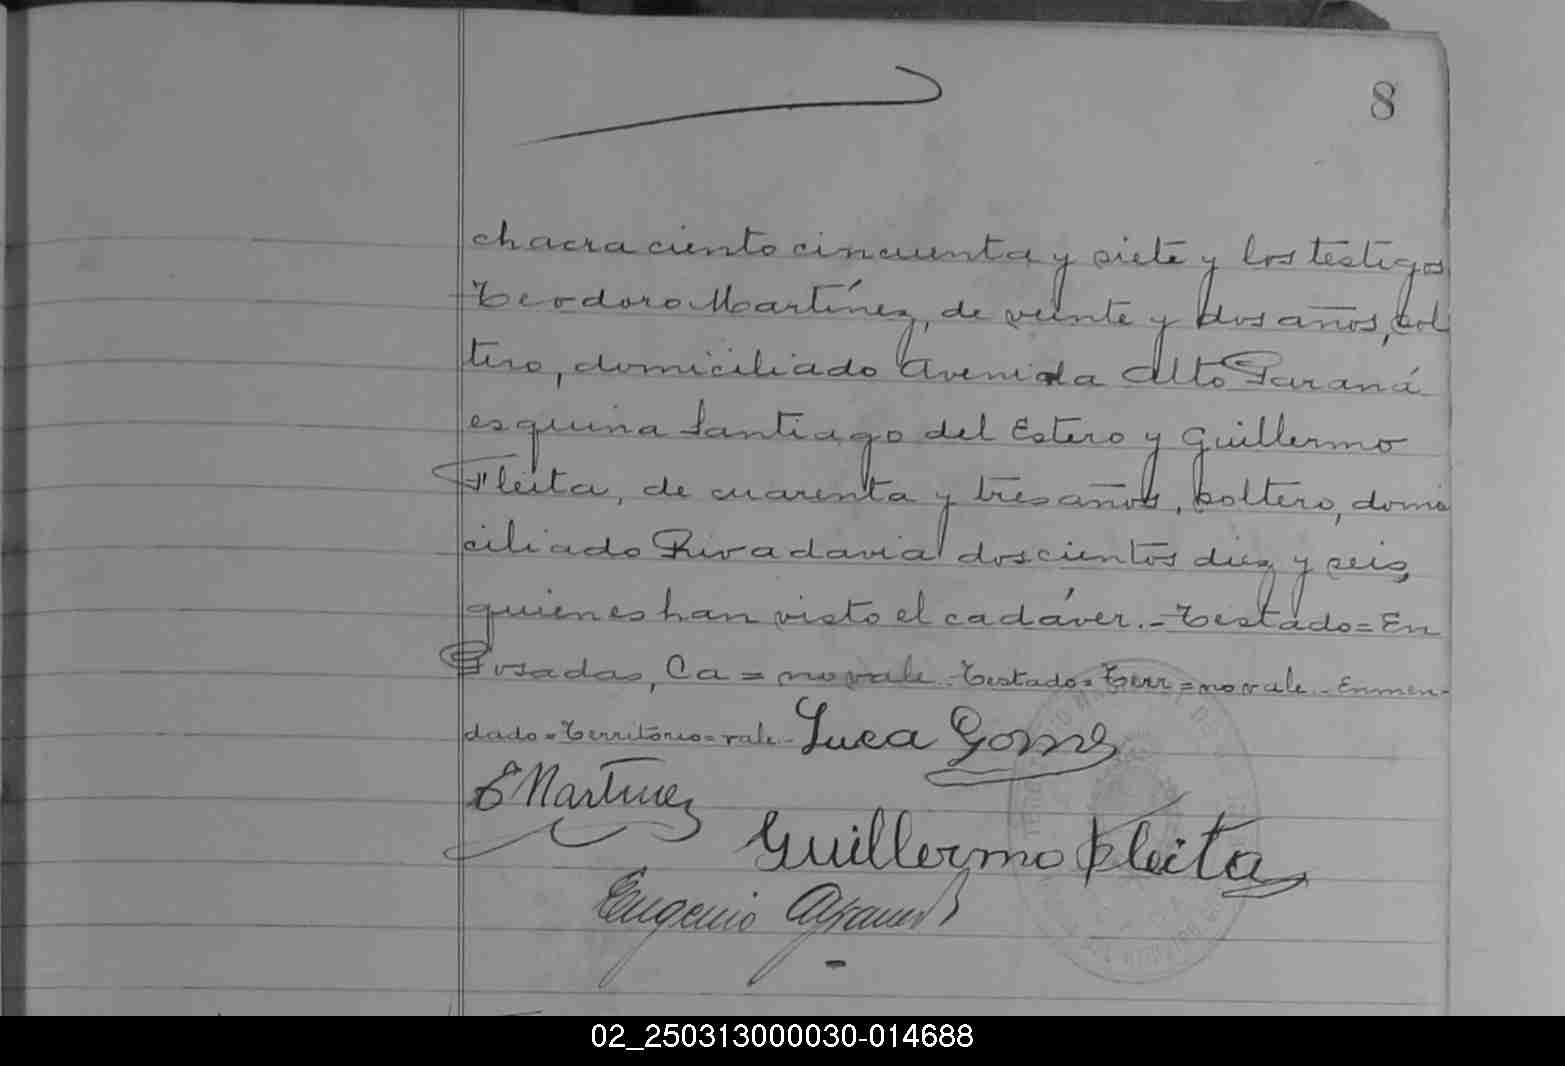 8
chacra ciento cincuenta y siete y los testigos
Teodoro Martínez, de veinte y dos años, sol
tero, domiciliado Avenida Alto Paraná
esquina Santiago del Estero y Guillermo
Fleita, de cuarenta y tres años, soltero, domi
ciliado Rivadavia doscientos diez y seis,
quienes han visto el cadáver.-Testado=En
Posadas, Ca=no vale-Testado=Terr=no vale.-Enmen-
dado=Territorio=vale-Luca Gomes
E Martinez
Guillermo Fleita
Eugenio
02_250313000030-014688